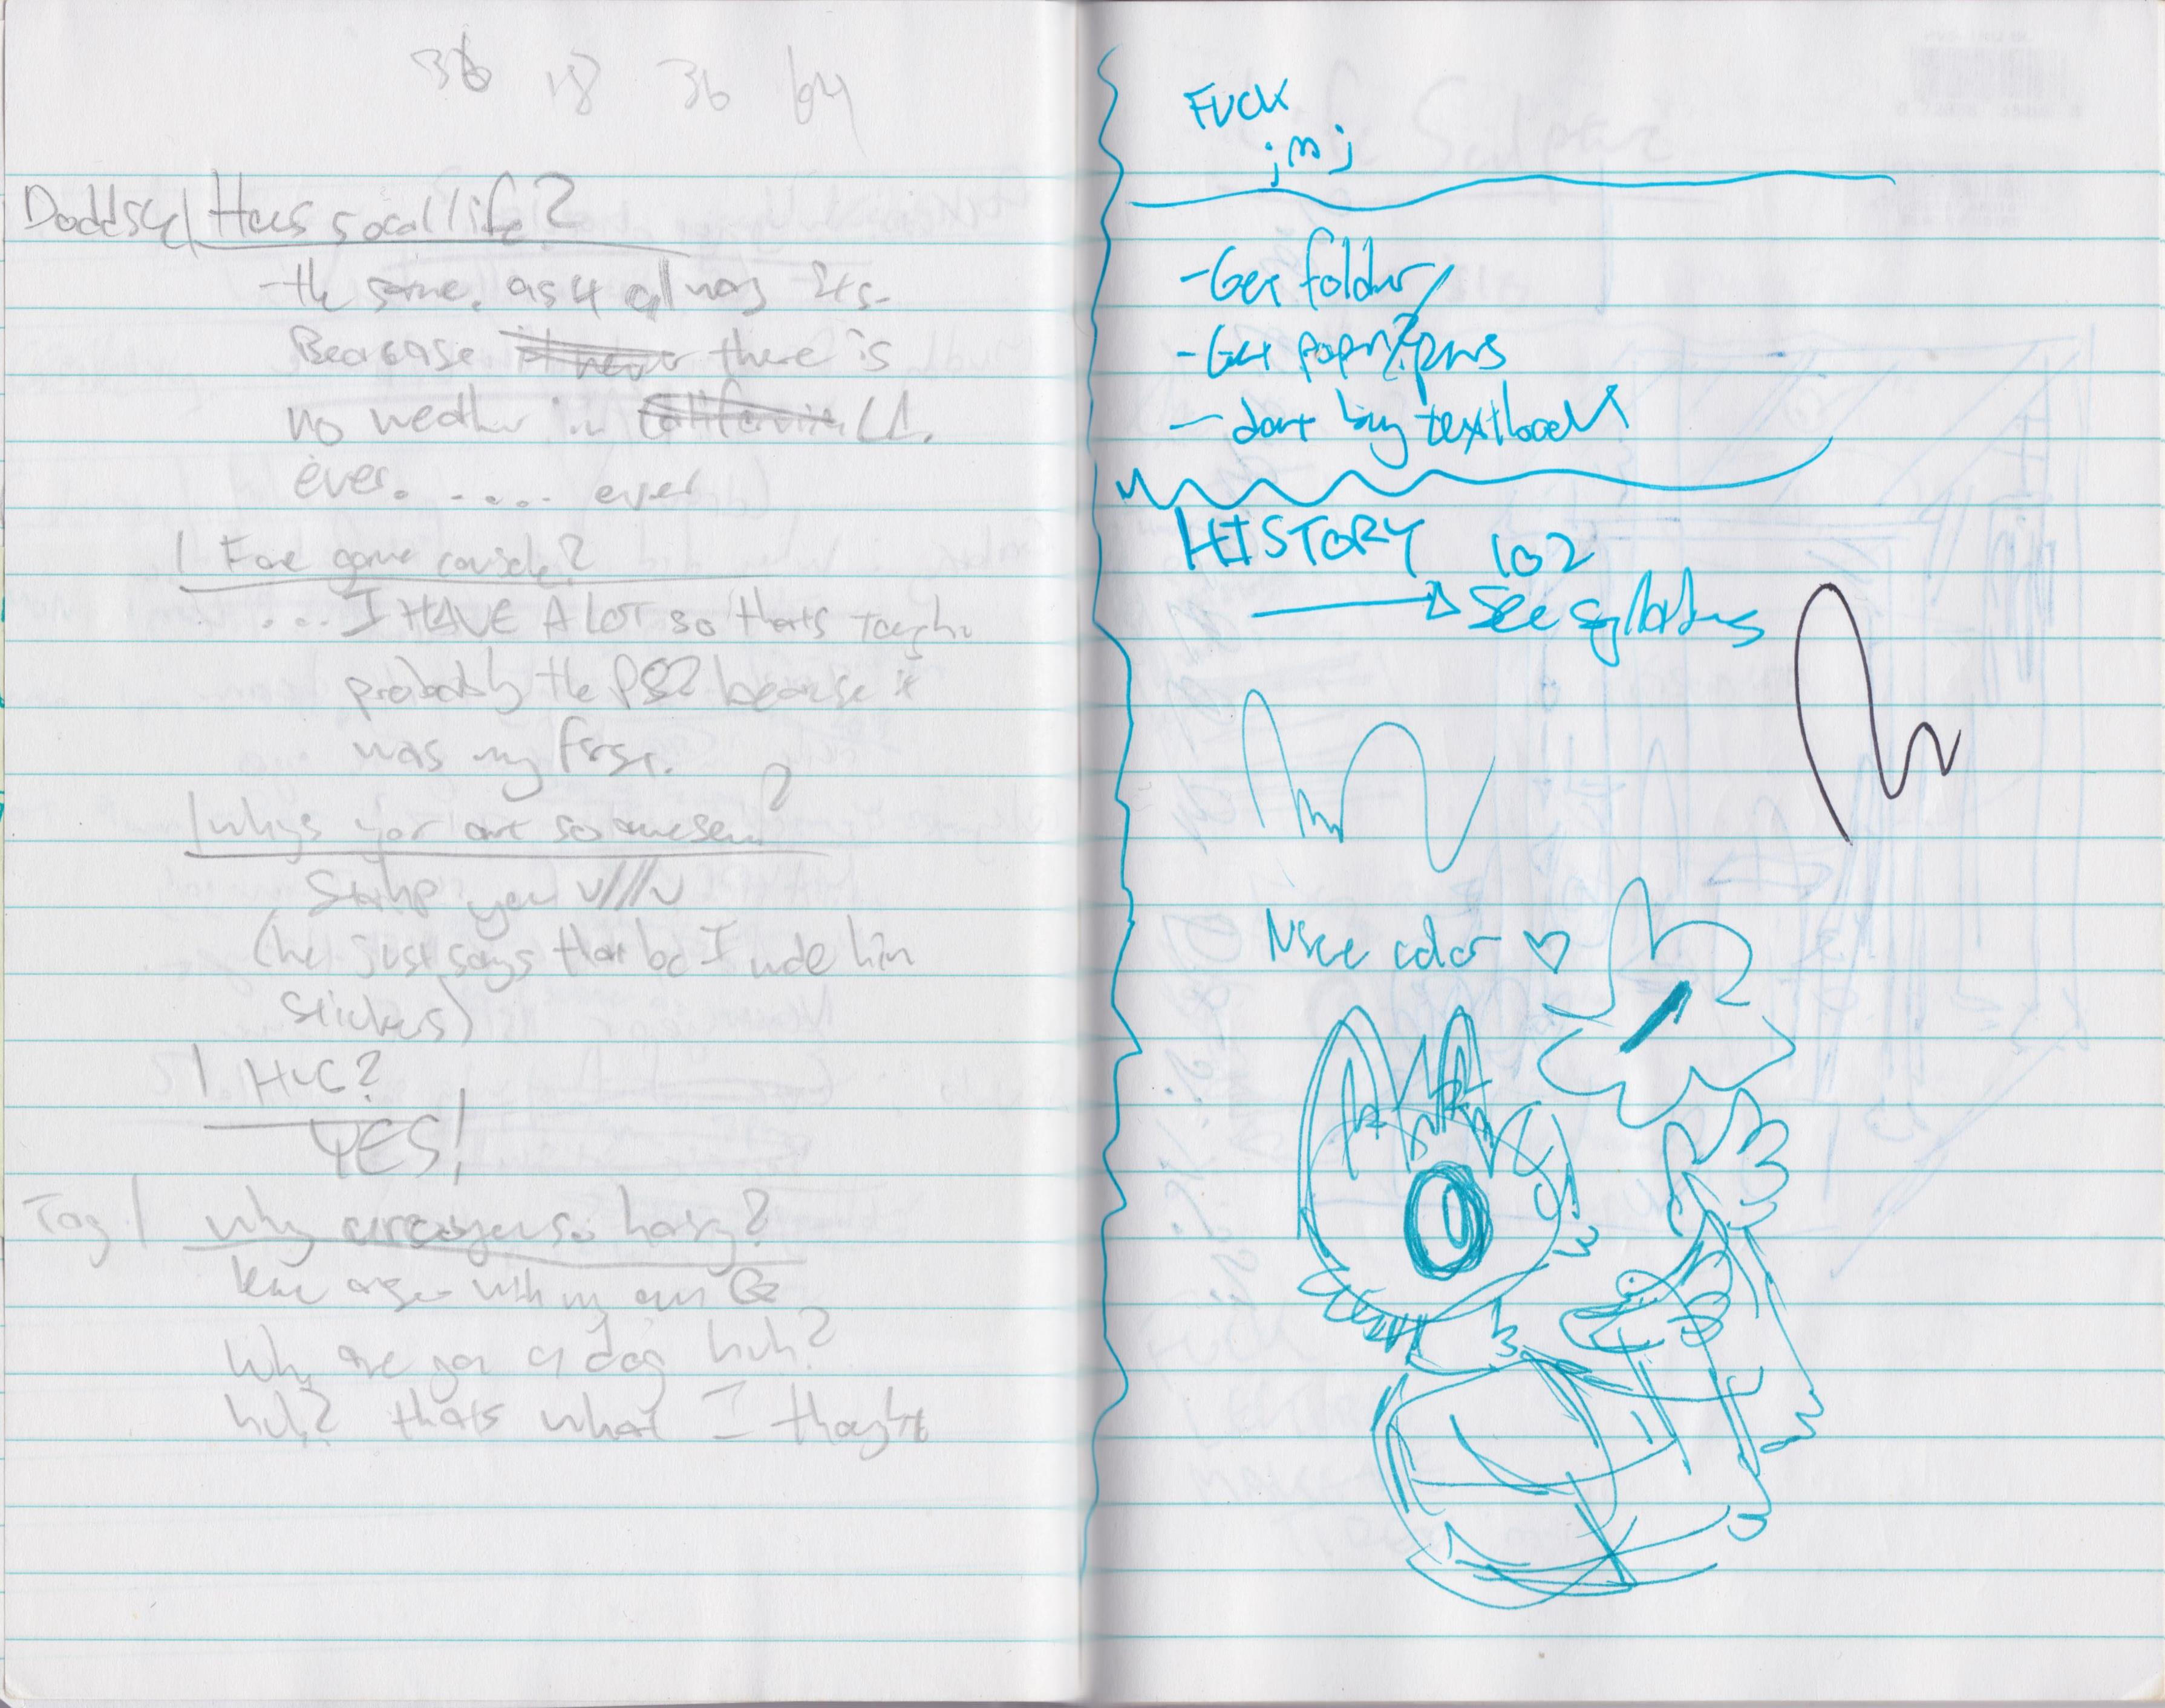 36 18 36 64
Doddsy | Hows socal life?
- the same. as it always is.
Beacase there is
no weather in LA.
ever. .... ever
| Fave game console?
... I HAVE A LOT so thats tough.
probably the PS2 because it
was my first.
| whys your art so awesem?
Stahp you v///v
(he just says that bc I made him
stickers)
| HUG?
YES!
Tag | why are you so horny?
Why are you a dog huh?
huh? thats what I thought
FUCK
jmj
- Get folder
- Get paper? pens
- dont buy textbook
HISTORY 102
See syllabus
Nice color ♡